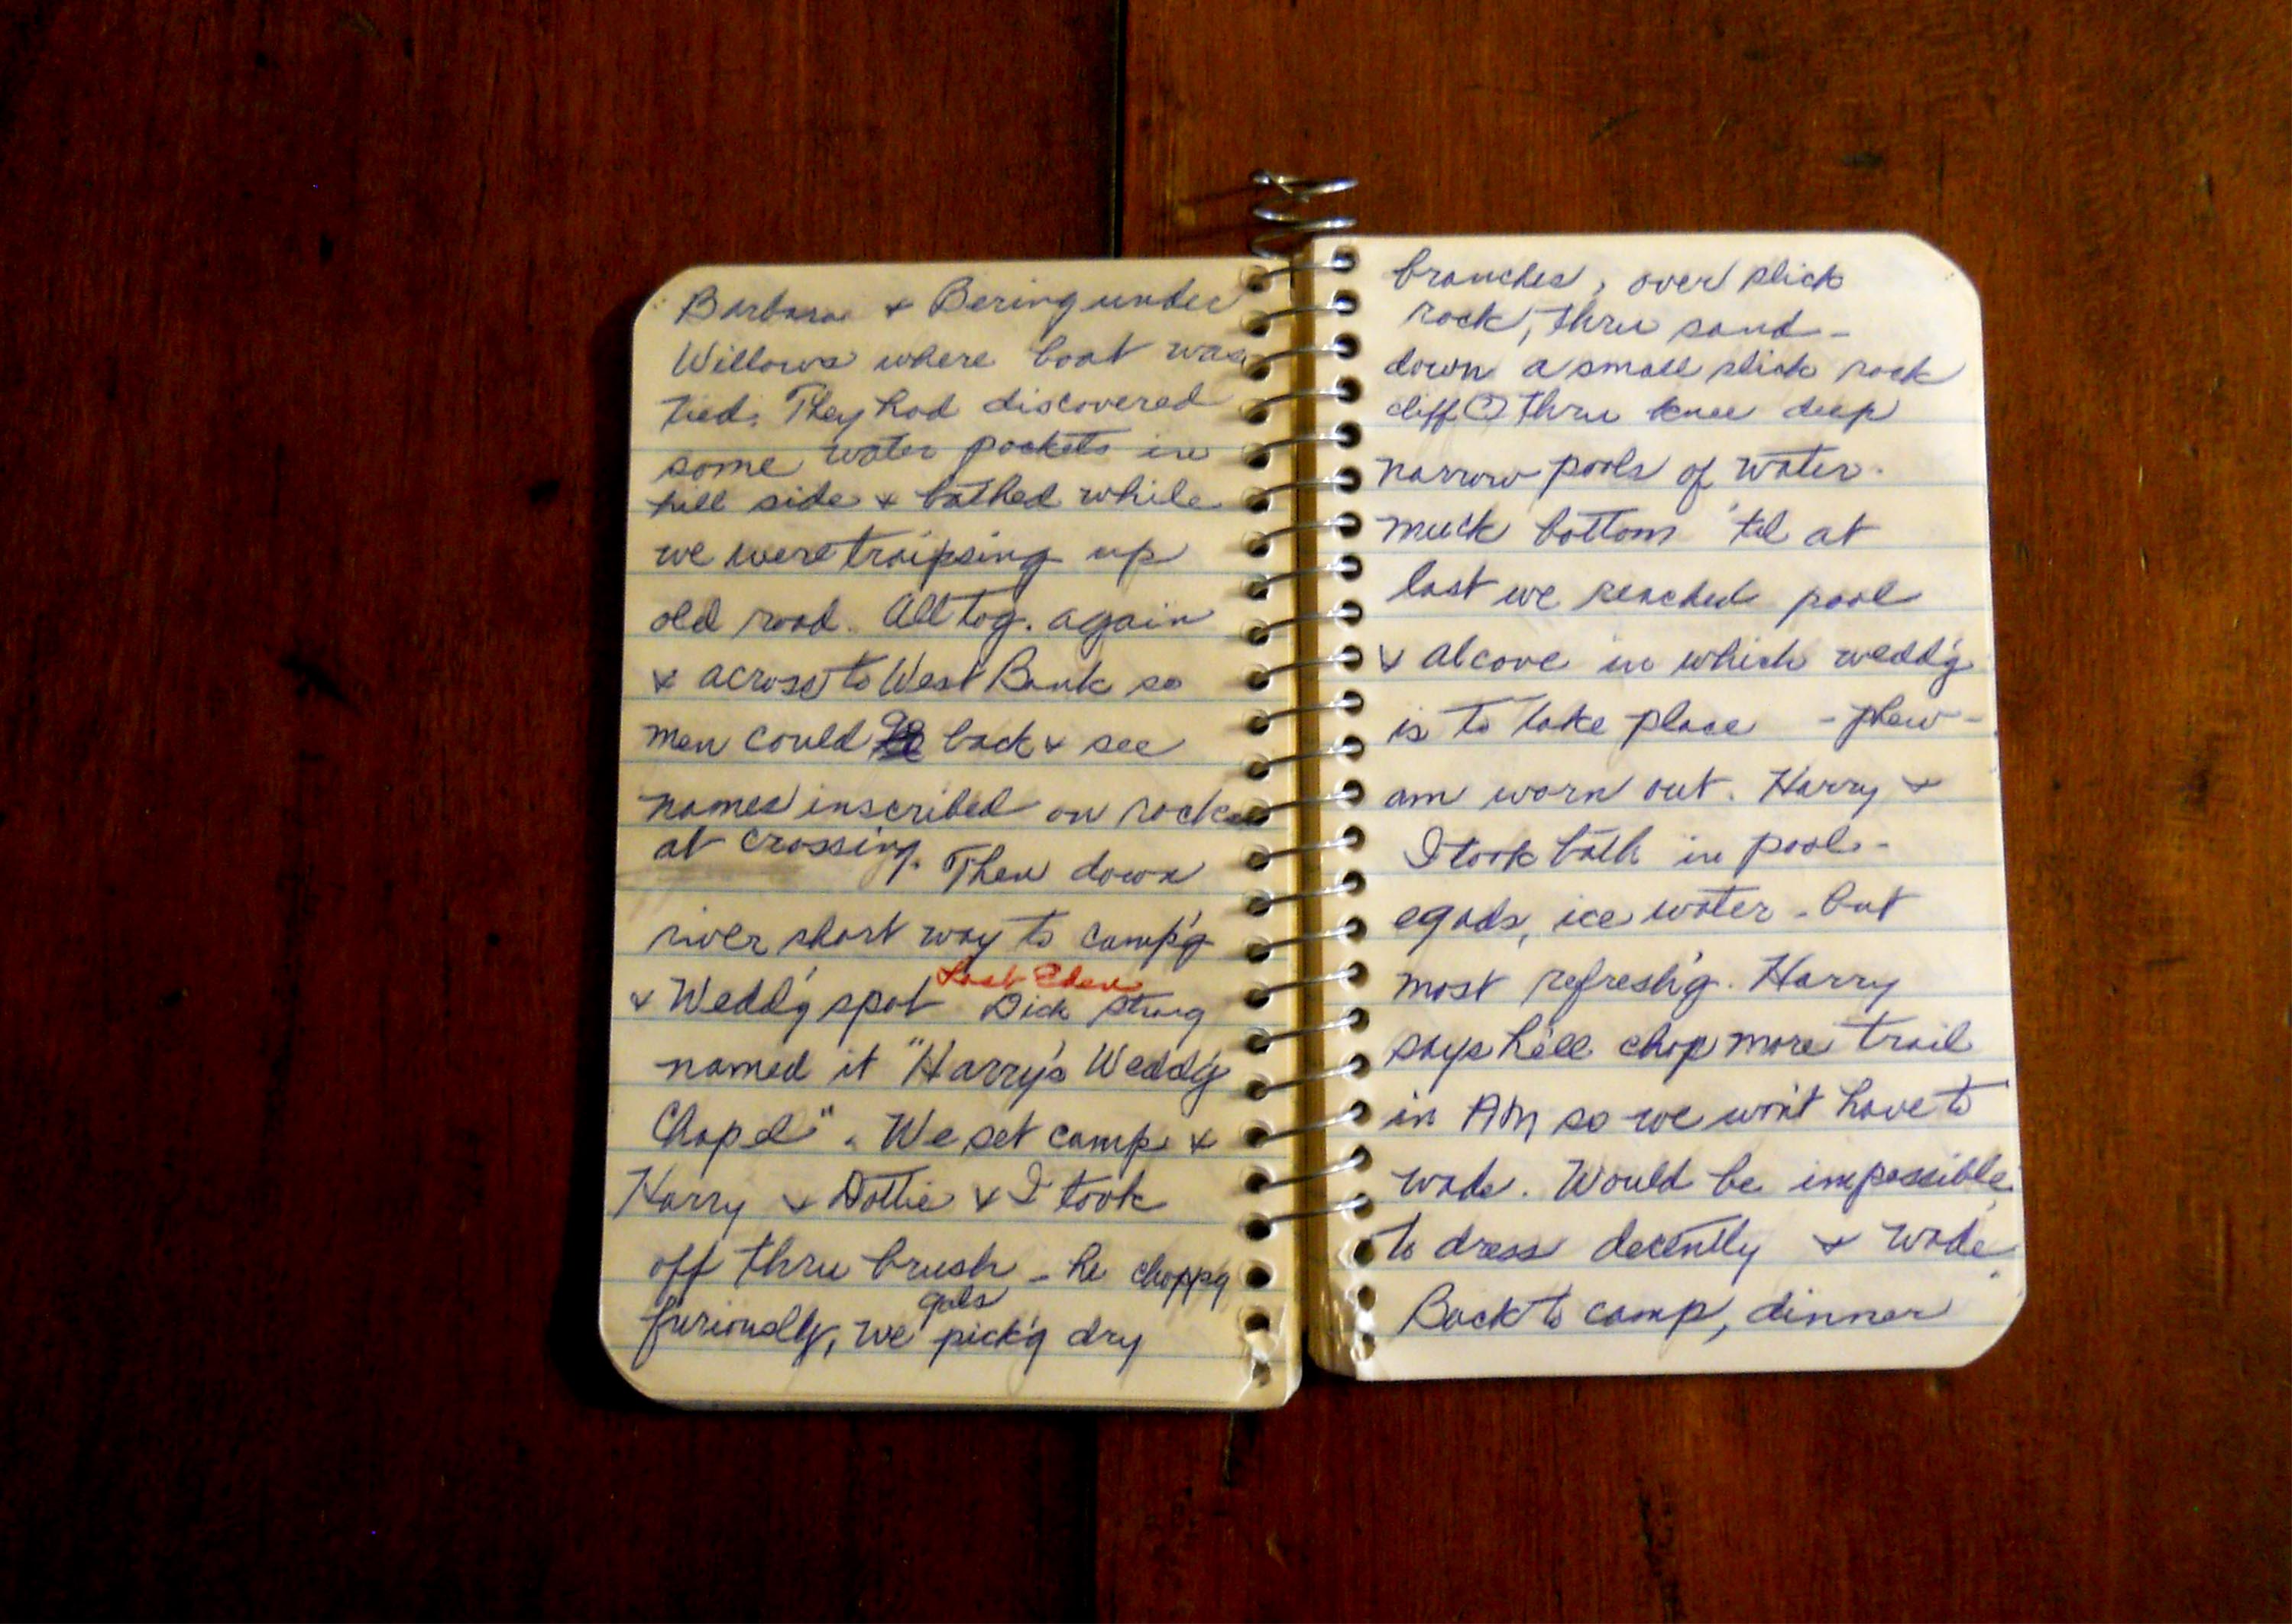 Barbara & Bering under
Willows where boat was
tied. They had discovered
some water pockets in
hill side & bathed while
we were traipsing up
old road. All tog. again
& across to West Bank so
men could go back & see
names inscribed on rocks
at crossing. Then down
river short way to camp'g
Lost Eden
& Wedd'g spot Dick Strong
named it "Harry's Wedd'g
Chapel". We set camp &
Harry & Dottie & I took
off thru brush - he chopp'g
gals
furiously, we pick'g dry
branches, over slick
rock, thru sand -
down a small slick rock
cliff thru knee deep
narrow pools of water.
muck bottom 'til at
last we reached pool
& alcove in which wedd'g
is to take place - phew -
am worn out. Harry &
I took bath in pool -
egads, ice water - but
most refresh'g. Harry
says he'll chop more trail
in AM so we won't have to
wade. Would be impossible
to dress decently & wade.
Back to camp, dinner